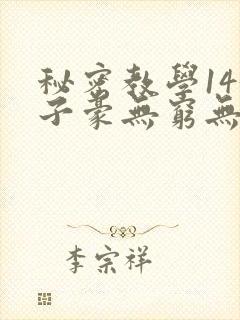 秘密教學14
子豪無窮無
李宗祥